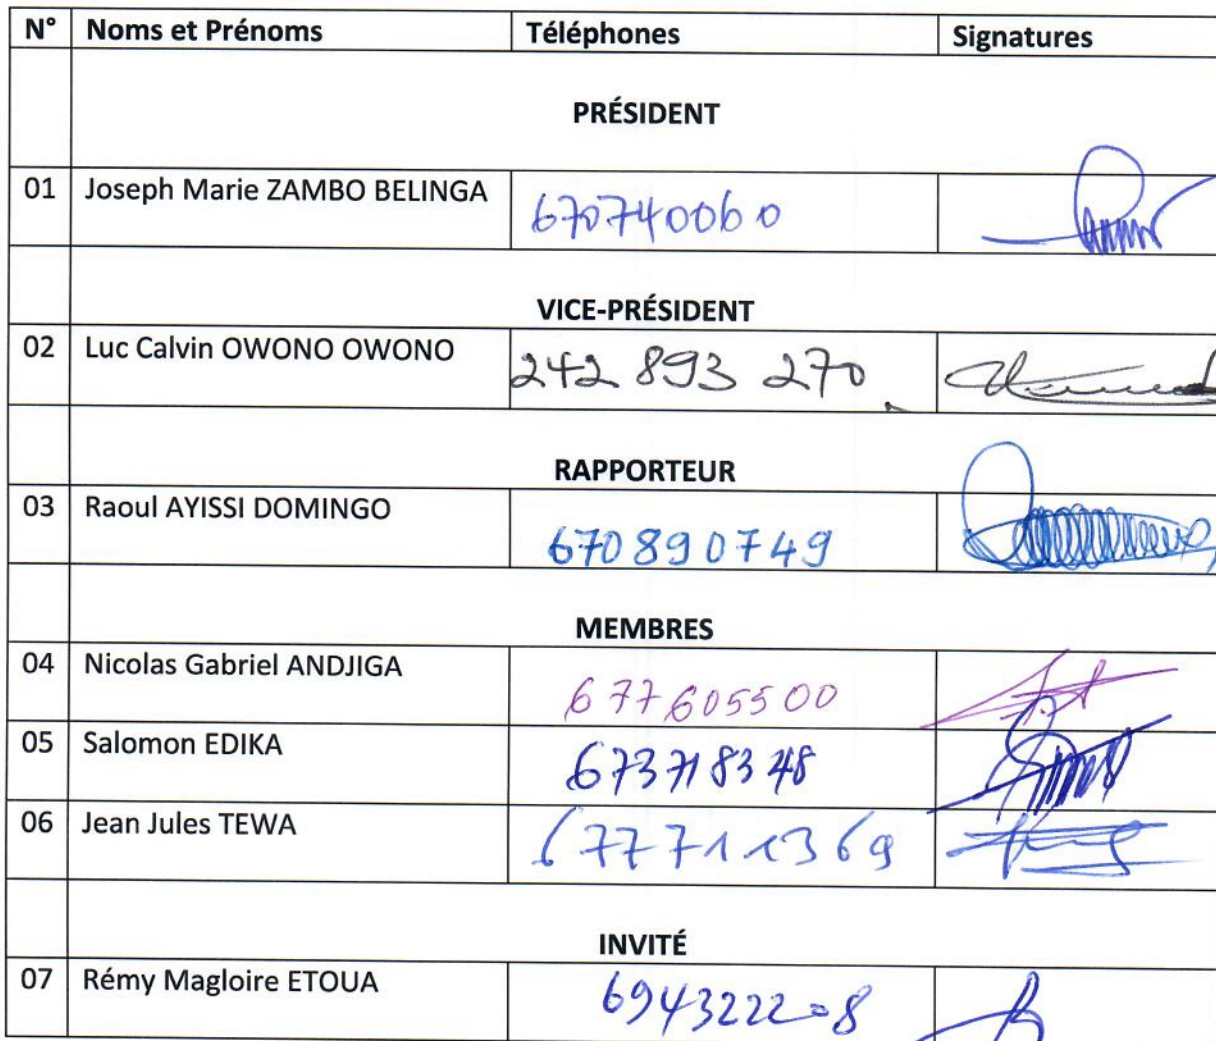 N° Noms et Prénoms Téléphones Signatures
PRÉSIDENT
01 Joseph Marie ZAMBO BELINGA 670740060
VICE-PRÉSIDENT
02 Luc Calvin OWONO OWONO 242 893 270
RAPPORTEUR
03 Raoul AYISSI DOMINGO 670890749
MEMBRES
04 Nicolas Gabriel ANDJIGA 677605500
05 Salomon EDIKA 673718348
06 Jean Jules TEWA 677711369
INVITÉ
07 Rémy Magloire ETOUA 694322208